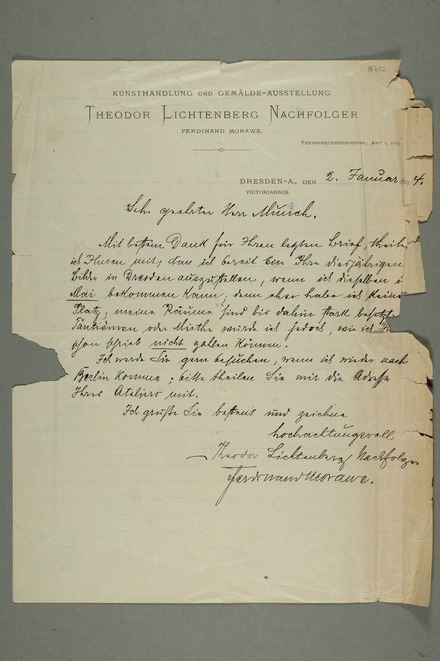 N 602
KUNSTHANDLUNG UND GEMÄLDE-AUSSTELLUNG
THEODOR LICHTENBERG NACHFOLGER
FERDINAND MORAWE.
FERNSPRECHVERBINDUNG: AMT I,
DRESDEN-A., DEN 2. Januar 1894.
VICTORIAHAUS.
Sehr geehrter Herr Munch.
Mit bestem Dank für Ihren letzten Brief, theile
ich Ihnen mit, dass ich bereit bin Ihre diesjährigen
Bilder in Dresden auszustellen, wenn ich dieselben i
Mai bekommen kann, denn eher habe ich keine
Platz; meine Räume sind bis dahin stark besetzt.
Tantiemen oder Miethe würde ich jedoch, wie ich
schon schrieb nicht zahlen können.
Ich werde Sie gern besuchen, wenn ich wieder nach
Berlin komme; bitte theilen Sie mir die Adresse
Ihres Ateliers mit.
Ich grüße Sie bestens und zeichne
hochachtungsvoll
Theodor Lichtenberg Nachfolger
Ferdinand Morawe.